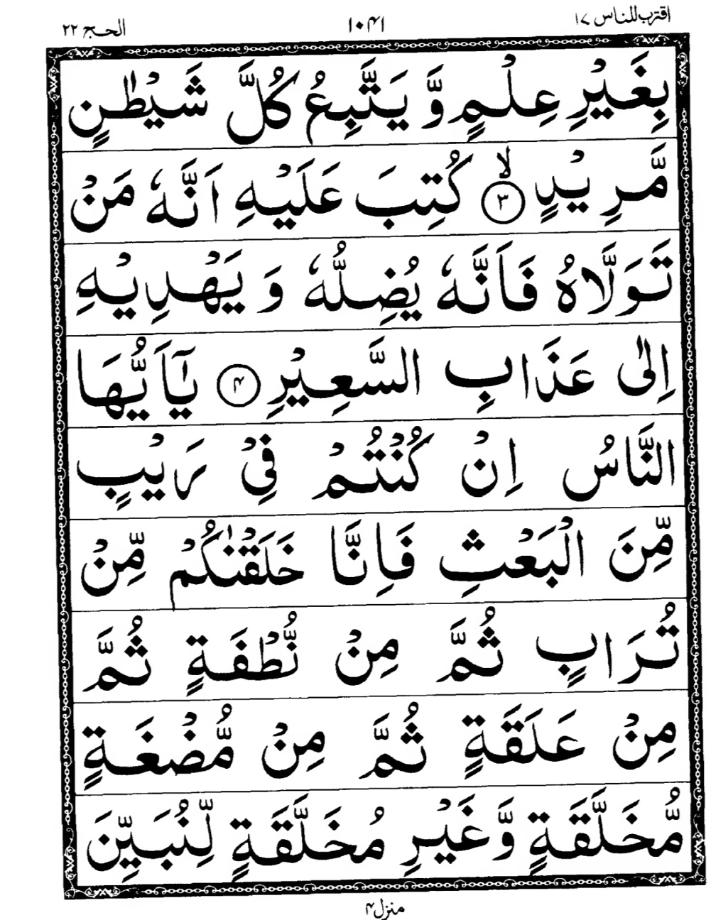 اقترب للناس ١٧ ١٠٤١ الحج ٢٢
بِغَيْرِ عِلْمٍ وَّ يَتَّبِعُ كُلَّ شَيْطٰنٍ
مَّرِيْدٍ ۙ﴿۳﴾ كُتِبَ عَلَيْهِ اَنَّهٗ مَنْ
تَوَلَّاهُ فَاَنَّهٗ يُضِلُّهٗ وَ يَهْدِيْهِ
اِلٰى عَذَابِ السَّعِيْرِ ﴿۴﴾ يٰٓاَيُّهَا
النَّاسُ اِنْ كُنْتُمْ فِيْ رَيْبٍ
مِّنَ الْبَعْثِ فَاِنَّا خَلَقْنٰكُمْ مِّنْ
تُرَابٍ ثُمَّ مِنْ نُّطْفَةٍ ثُمَّ
مِنْ عَلَقَةٍ ثُمَّ مِنْ مُّضْغَةٍ
مُّخَلَّقَةٍ وَّغَيْرِ مُخَلَّقَةٍ لِّنُبَيِّنَ
منزل۴